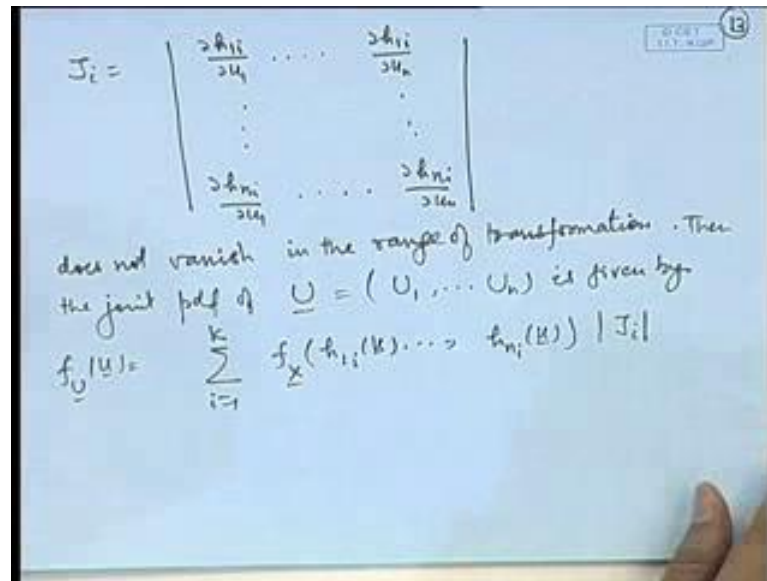 13
J_i = | ∂h_{1i}/∂u_1 .... ∂h_{1i}/∂u_n |
∂h_{ni}/∂u_1 .... ∂h_{ni}/∂u_n
does not vanish in the range of transformation. Then
the joint pdf of U = (U_1, ... U_n) is given by
f_U(u) = Σ_{i=1}^{k} f_X(h_{1i}(u)..., h_{ni}(u)) |J_i|